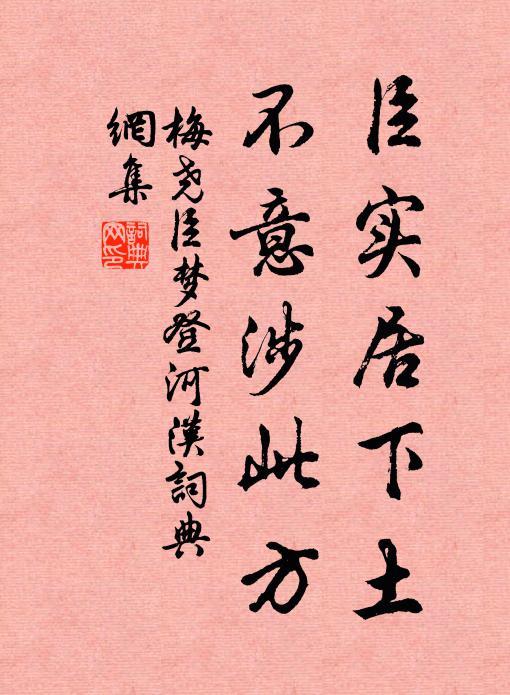 臣实居下土
不意涉此方
梅尧臣梦登河漢詞典
網集
詞典
网印